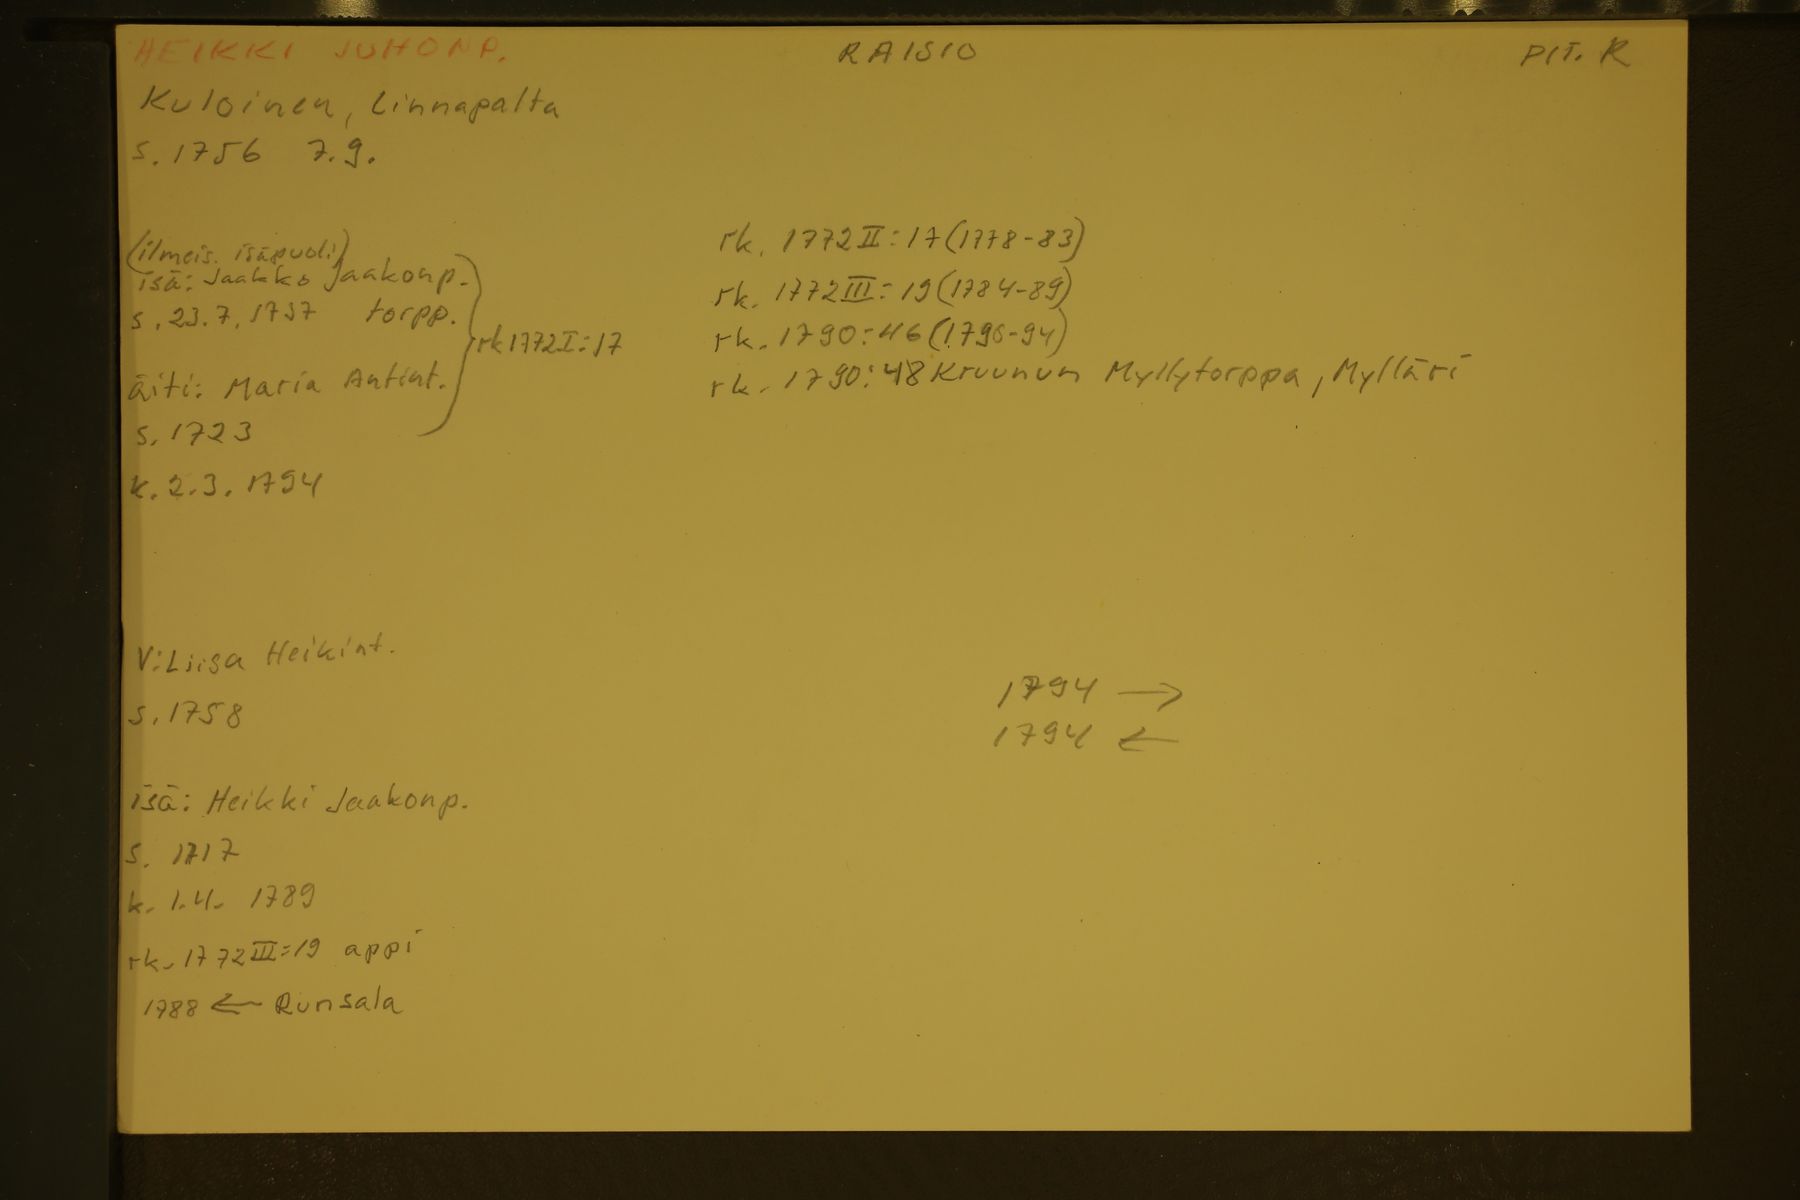 HEIKKI JUHONP. RAISIO PIT. R
Kuloinen, Linnapalta
s. 1756 7.9.
(ilmeis. isäpuoli)
isä: Jaakko Jaakonp.
s. 23.7.1737 torpp.
rk 1772 I:17
äiti: Maria Antint.
s. 1723
k. 2.3. 1794
rk. 1772 II:17 (1778-83)
rk. 1772 III:19 (1784-89)
rk. 1790:46 (1790-94)
rk. 1790:48 Kruunun Myllytorppa, Mylläri
V: Liisa Heikint.
s. 1758
1794 →
1794 ←
isä: Heikki Jaakonp.
s. 1717
k. 1.4. 1789
rk. 1772 III:19 appi
1788 ← Runsala